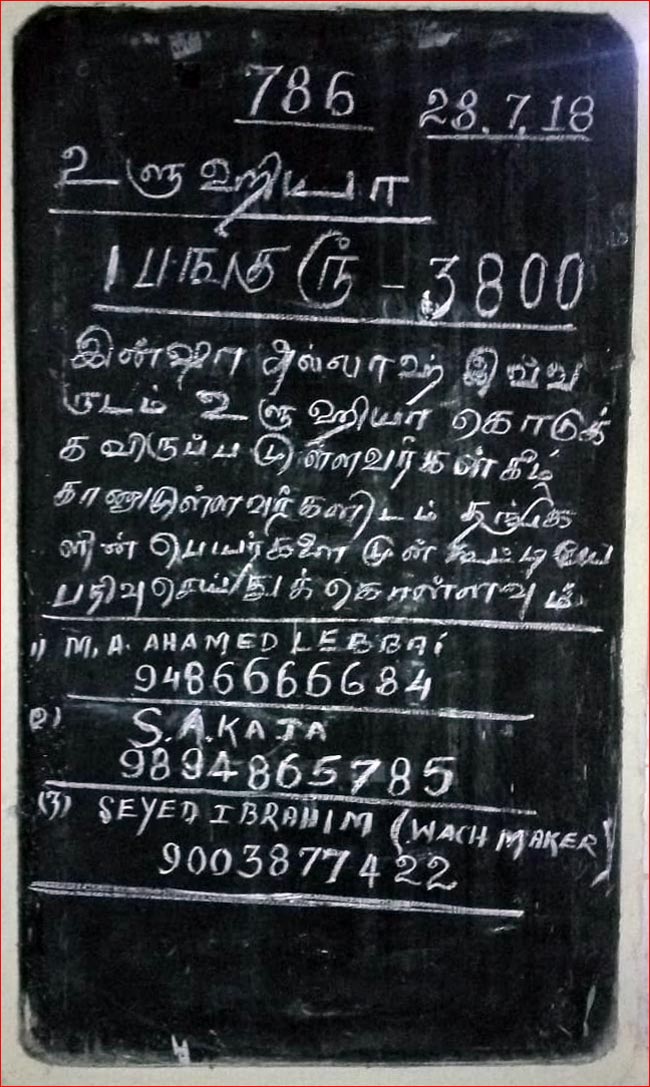 786 28.7.18
உளுஹியா
1 பங்கு ரூ - 3800
இன்ஷா அல்லாஹ் இவ்வ
ருடம் உளுஹியா கொடுக்
க விருப்பமுள்ளவர்கள் கீழ்
காணுமுள்ளவர்களிடம் தங்க
ளின் பெயர்களை முன் கூட்டியே
பதிவுசெய்துக் கொள்ளவும்.
1) M.A. AHAMED LEBBAI
9486666684
2) S.A.KAJA
9894865785
(3) SEYED IBRAHIM (WACH MAKER)
9003877422